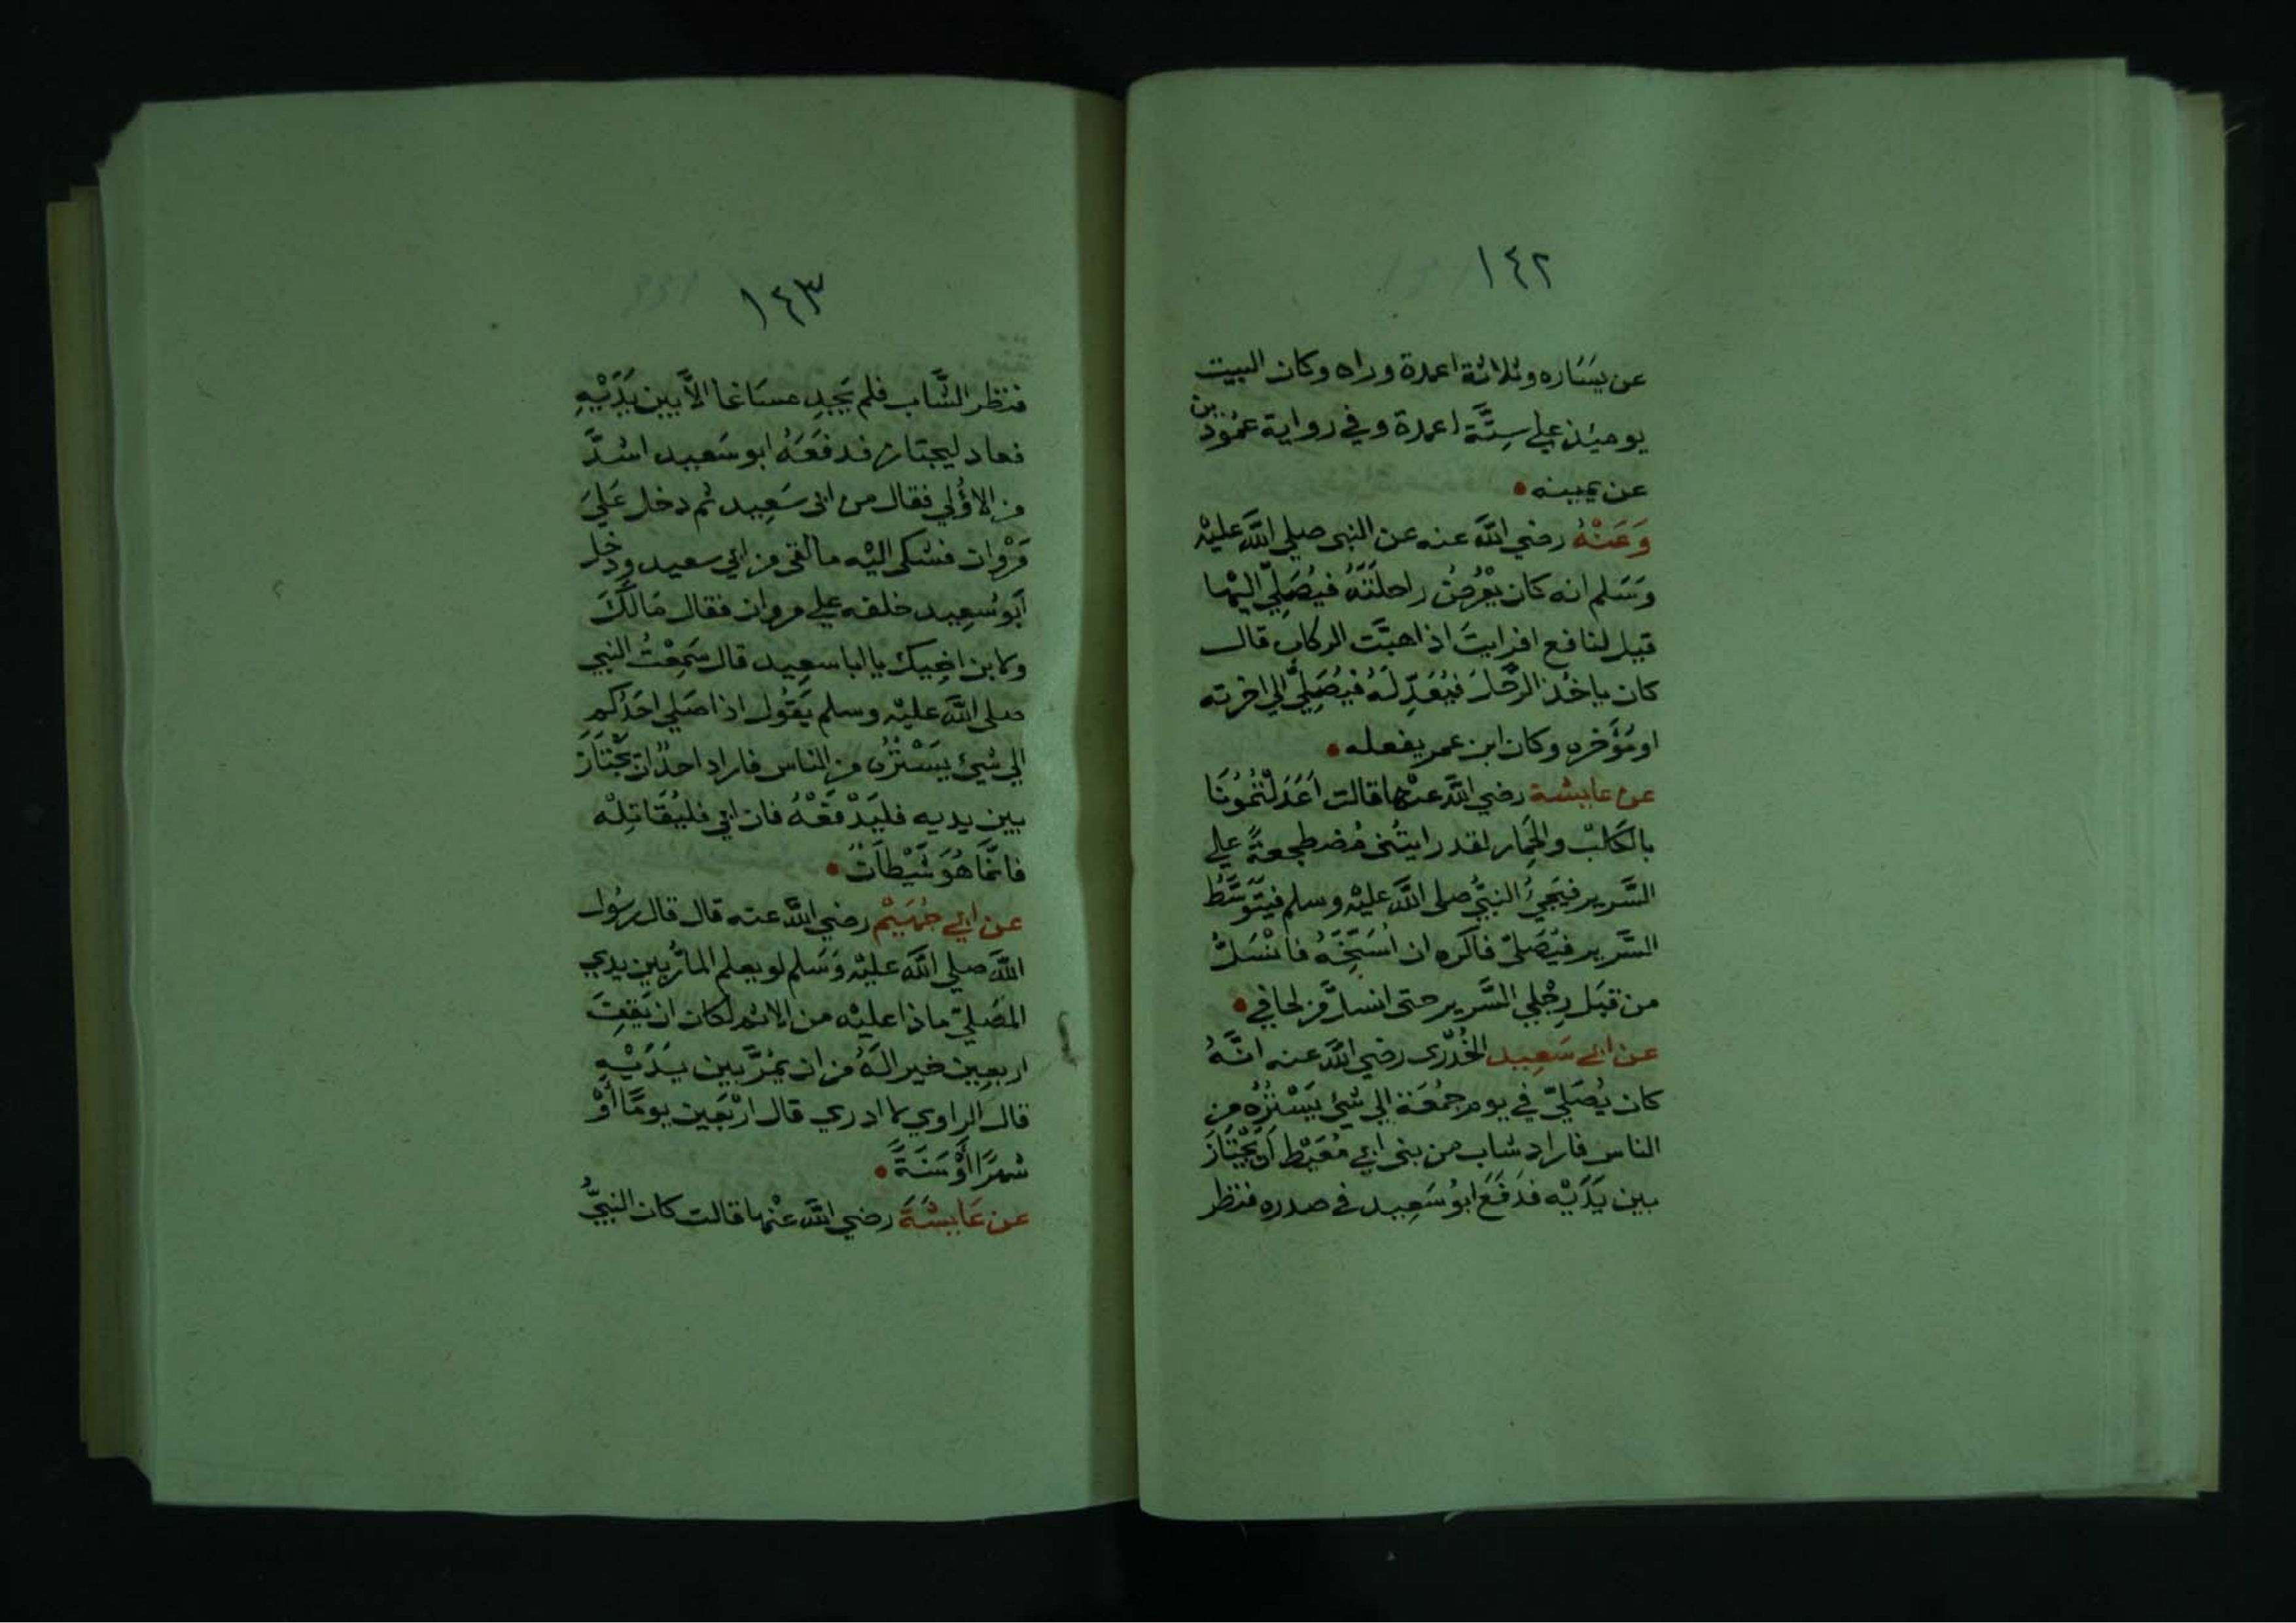 ١٤٢
عن يسَاره وثلاثة اعمدة وراه وكان البيت
يوميئذ علي سِتَّة اعمدة وفي رواية عمُودين
عن يمينه
وَعَنْهُ رضي اللَّه عنه عن النبي صلي اللَّه عليْه
وَسَلم انه كان يَعْرِضُ راحلَتَهُ فيُصَلِّي اليْها
قيل لنافع افرايتَ اذا هبَّت الركاب قال
كان ياخُذ الرَّحْلَ فيُعَدِّلَهُ فيُصَلِّي الي اخرته
اومُؤَخره وكان ابن عمر يفعله
عن عايشة رضي اللَّه عنْها قالت اَعَدَلْتُمُونَا
بالكَلْب والحِمار لقد رايتُني مُضطجعةً علي
السَّرير فيَجيُ النبيُّ صلي اللَّه عليْه وسلم فيَتَوَسَّطُ
السَّرير فيُصَلي فاكره ان اُسَنِّحَهُ فانْسَلُّ
من قِبَل رِجْلي السَّرير حتي انسلَّ من لحافي
عن ابي سَعِيد الخُدْري رضي اللَّه عنه انَّهُ
كان يُصَلِّي في يوم جمُعَة الي شيٍ يَسْتُرُه من
الناس فاراد شاب من بني ابي مُعَيْط اَن يَجْتَازَ
بين يَدَيْه فدَفَعَ ابوُ سَعِيد في صدره فنظر
١٤٣
فنظر الشَّاب فلم يَجِد مسَاغا الاَّ بين يَدَيْهِ
فعاد ليجتاز فدفَعَهُ ابو سَعيد اشدَّ
من الاوُلي فقال من ابي سَعِيد ثم دخل عَلَي
مَرْوان فشكي اليْه ما لقي من ابي سعيد ودخل
اَبو سَعِيد خلفه علي مروان فقال مَالَكَ
ولابن اخيك يا ابا سعِيد قال سَمِعْتُ النبي
صلي اللَّه عليْه وسلم يَقوُل اذا صَلي احَدُكم
الي شيٍ يَسْتُرُه من الناس فاراد احدٌ ان يَجْتَازَ
بين يديه فليَدْفَعْهُ فان ابي فليُقَاتِلْه
فانَّمَا هُوَ شَيْطَانٌ
عن ابي جُهَيْم رضي اللَّه عنه قال قال رسُول
اللَّه صلي اللَّه عليْه وَسَلم لو يعلم المار بين يدي
المصَلي ماذا عليْه من الاثم لكان ان يَقِفَ
اربعين خير الَهُ من ان يَمُرَّ بين يَدَيْهِ
قال الراوي لا ادري قال ارْبَعين يومًا أوْ
شهرًا أَوْ سَنَةً
عن عَايشَةَ رضي اللَّه عنْها قالت كان النبيُّ